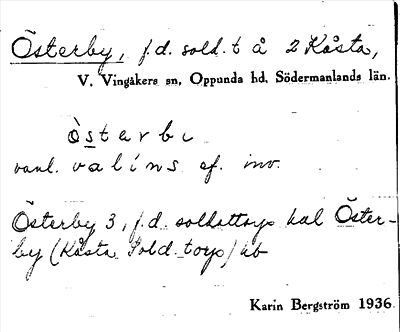 Österby, f.d. sold.t å 2 Kåsta,
V. Vingåkers sn, Oppunda hd, Södermanlands län.
ò s t ə r b ι
vanl. v a l i n s af. inv.
Österby 3, f.d. soldattorp kal Öster-
by (Kåsta Sold.torp) ub
Karin Bergström 1936.